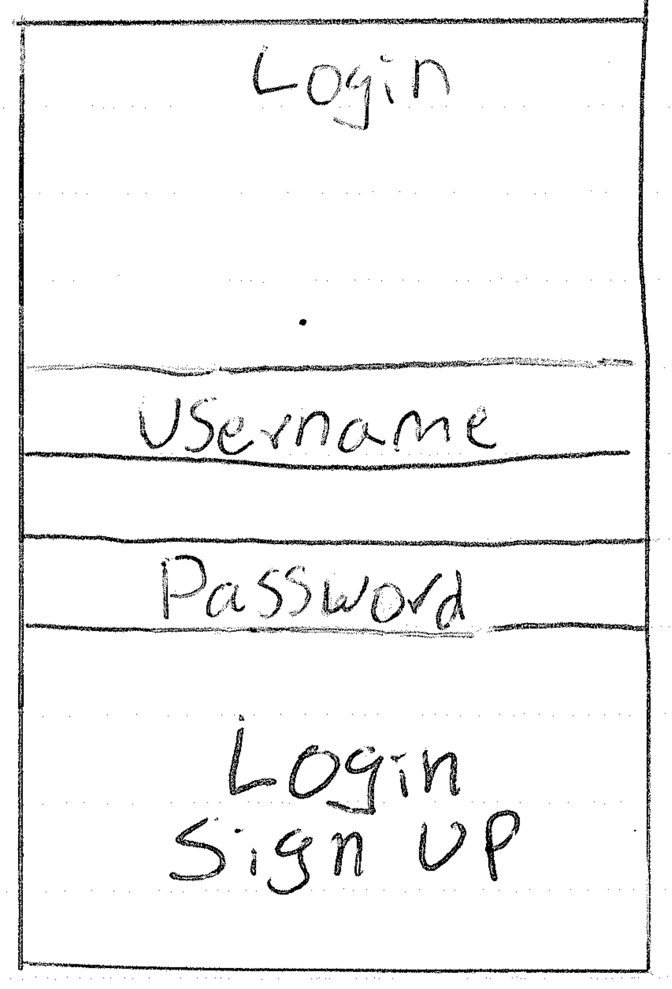 Login
Username
Password
Login
Sign UP